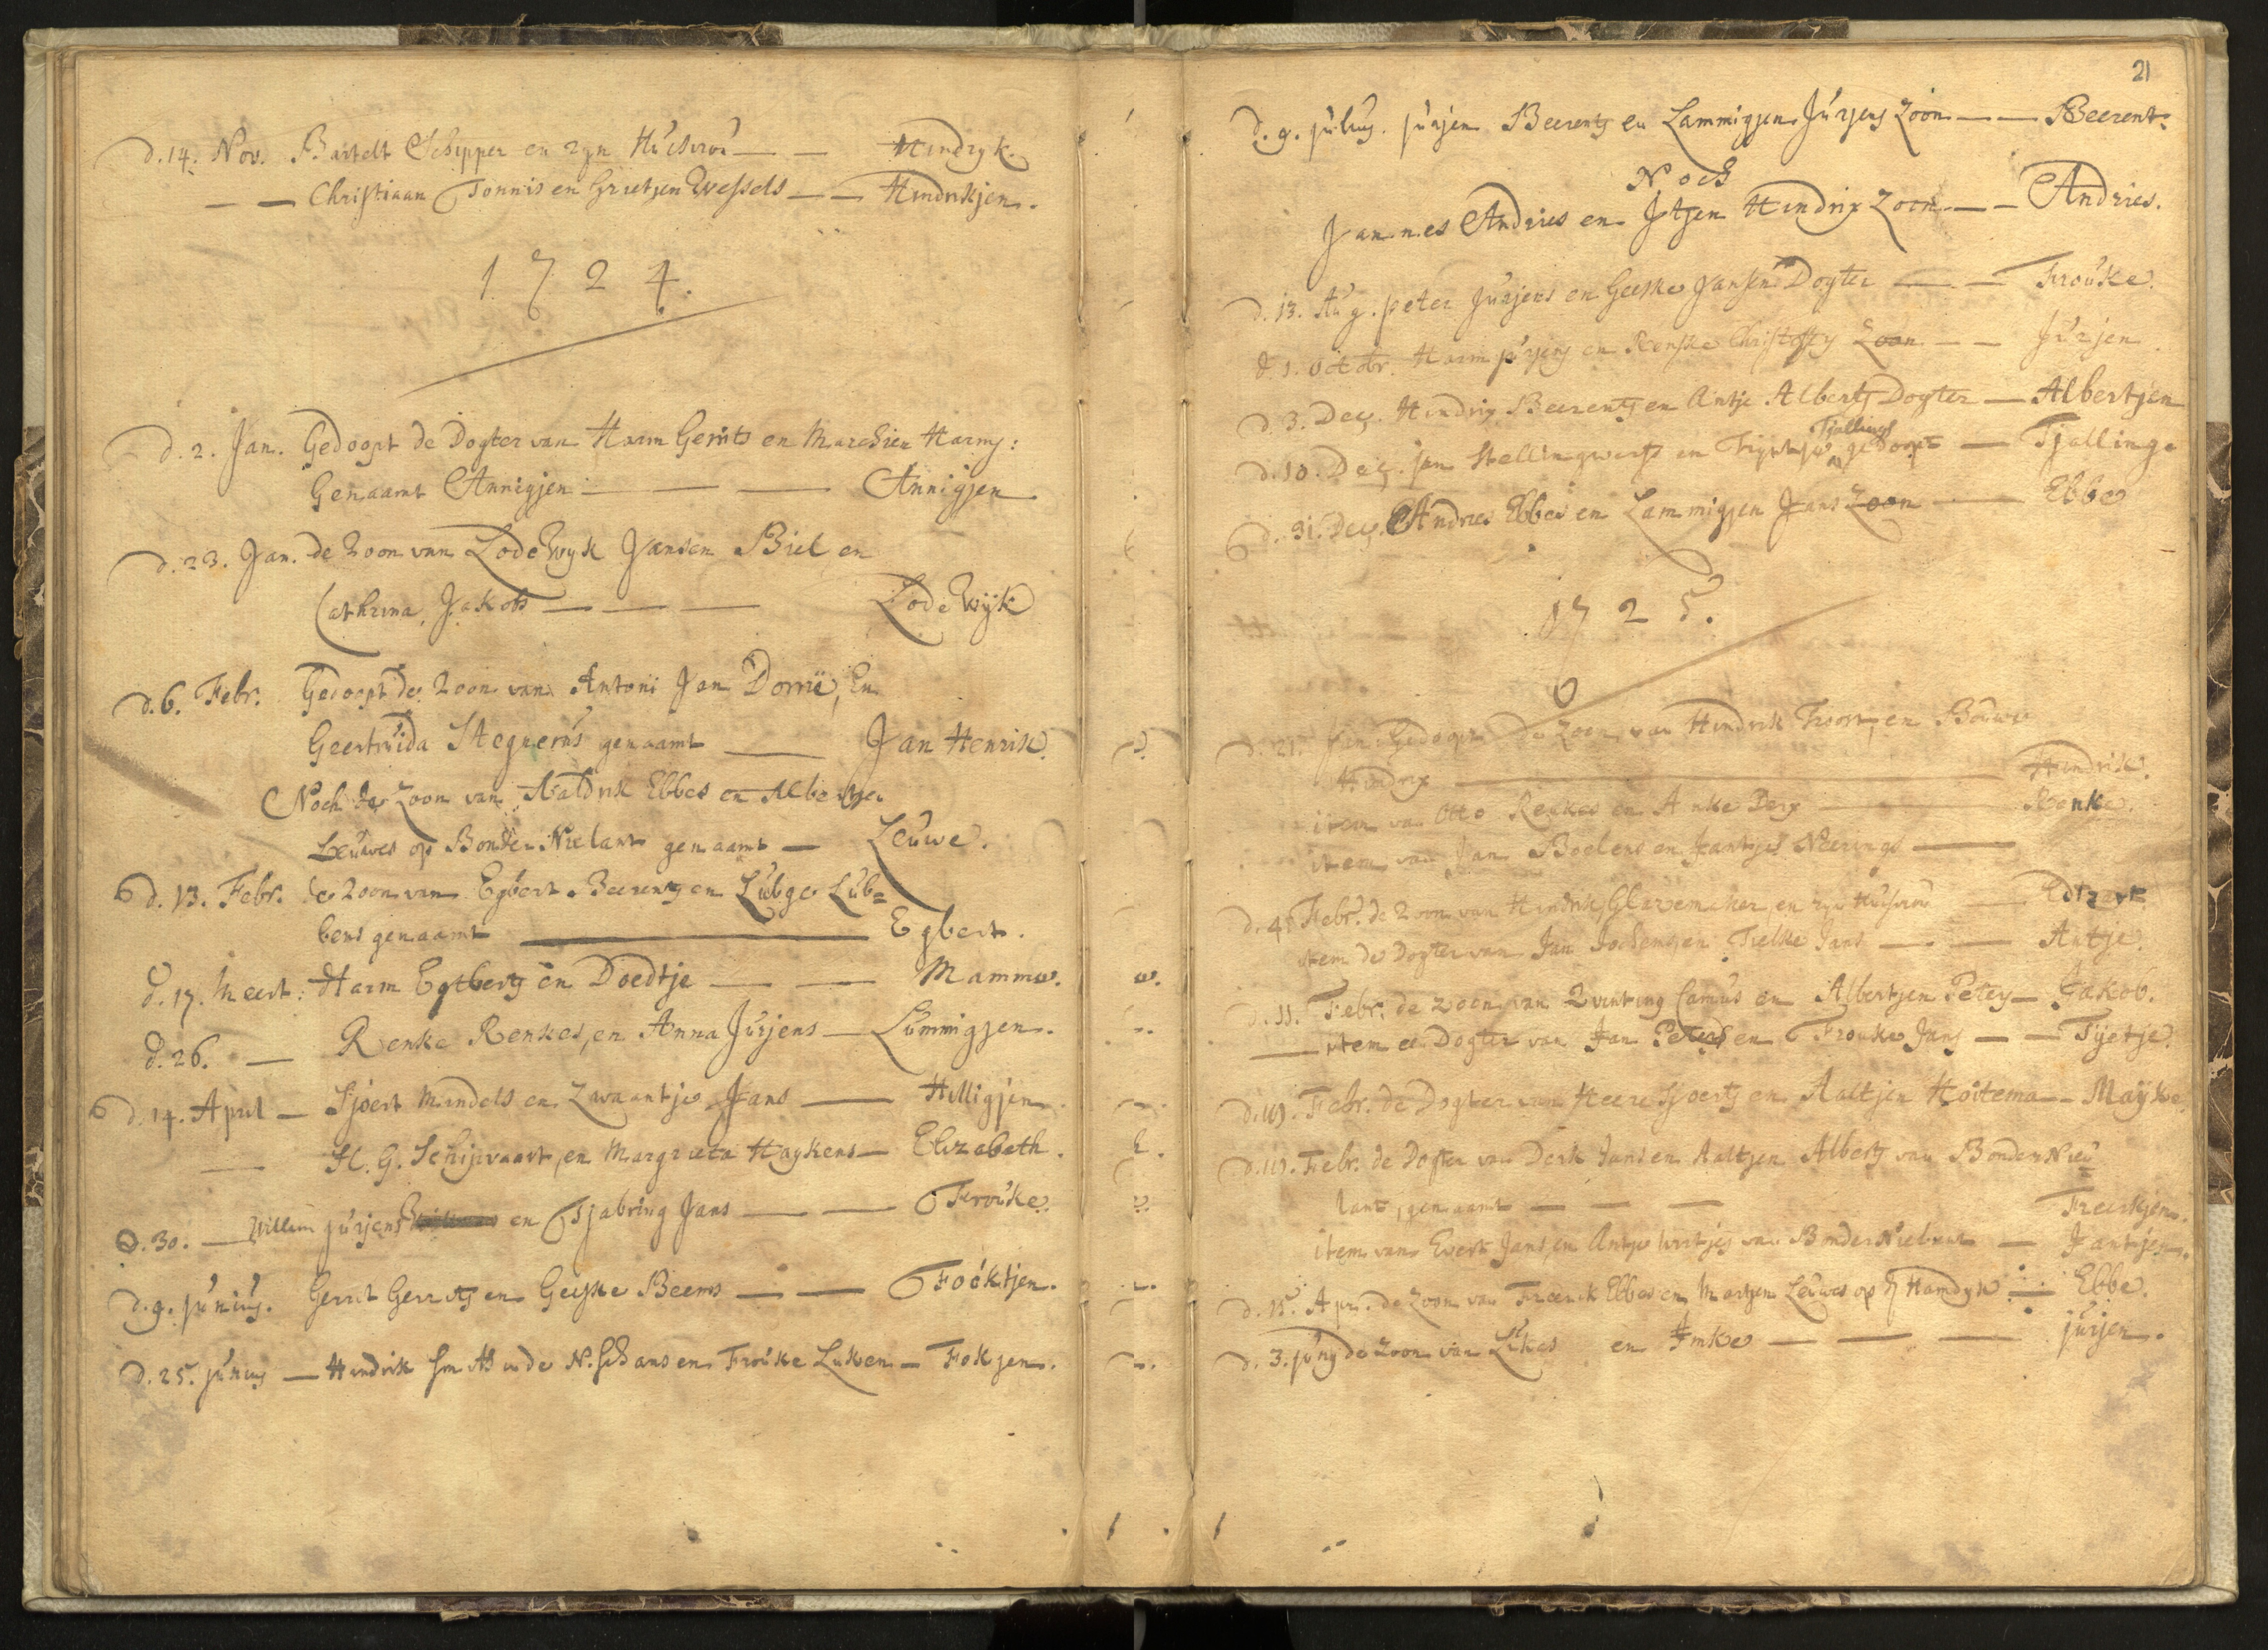 d. 14. Nov. Bartelt Schipper en zyn Huisvrou — — Hindryk.
— — Christiaan Tonnis en Grietjen Wessels — — Hindrikjen.
1724.
d. 2. Jan. Gedoopt de Dogter van Harm Gerrits en Marchien Harms:
Genaamt Annigjen — — — Annigjen
d. 23. Jan. de Zoon van Lodewyk Jansen Biel en
Cathrina Jakobs — — — Lodewijk
d. 6. Febr. Gedoopt de Zoon van Antoni Jan Dorrie, En
Geertruida Stegnerus genaamt — Jan Henrik.
Noch de Zoon van Aaldrik Ebbes en Albertjen
Leuwes op Bonder Nielant genaamt — Leuwe.
d. 13. Febr. de Zoon van Egbert Beerents en Lubge Lub=
bens genaamt — Egbert.
d. 17. Meert: Harm Egtberts en Doedtje — — Mamme.
d. 26. — Renke Renkes, en Anna Jurjens — Lummigjen.
d. 14. April — Sjoert Mendels en Zwaantje Jans — Hilligjen
— H. G. Schipvaart, en Margrieta Haykens — Elizabeth.
d. 30. — Willem Jurjens en Tjabring Jans — — Frouke.
d. 9. Junius. Gerrit Gerrits en Geeske Beems — — Foöktjen.
d. 25. Junius — Hindrik Smith in de N. Schans en Frouke Luken — Fokjen.
21
d. 9. Julius. Jurjen Beerents en Lammigjen Jurjens Zoon — — Beerent.
Noch
Jannes Andries en Jtjen Hindrix Zoon — — Andries.
d. 13. Aug. peter Jurjens en Geeske Jansen Dogter — — Frouke.
d. 1. Octobr. Harm Jurjens en Renske Christoffs Zoon — — Jurjen.
d. 3. Dec. Hindrix Beerents en Antje Alberts Dogter — Albertjen
Tjallings
d. 10. Dec. Jan Stellingwerf en Trijntje gedoopt — Tjallinge
d. 31. Dec. Andries Ebbes en Lammigjen Jans Zoon — Ebbe
1725.
d. 21. Jan. Gedoopt de Zoon van Hindrik en Bouwe
Hindrix — Hindrik.
item van Otto Renkes en Anke Derx — Renke.
item van Jan Boelens en Jantjes Neerings —
d. 4. Febr. de Zoon van Hindrik Glazemaker, en zyn Huisvrou — Edtzart
item de Dogter van Jan Jochems en Trelke Jans — — Antje.
d. 11. Febr. de Zoon van Quinting Camus en Albertjen Peters — Jakob.
— item de Dogter van Jan Peters en Frouke Jans — — Tijetje.
d. 19. Febr. de Dogter van Heere Sjoerts en Aaltjen Hoitema — Mayke.
d. 19. Febr. de Dogter van Derk Jans en Aaltjen Alberts van Bonder Nieu=
lant, genaamt — — — Freerkjen.
item van Evert Jans, en Antje van Bonder Nielant — Jantjen.
d. 15. Apr. de Zoon van Freerick Ebbes en Martjen Leuwes op d' Hamdyk — Ebbe.
d. 3. Juny de Zoon van Likes en Imke — — — Jurjen.